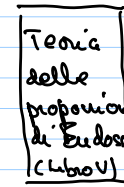 Teoria
delle
proporzion
di Eudoss
(Libro V)